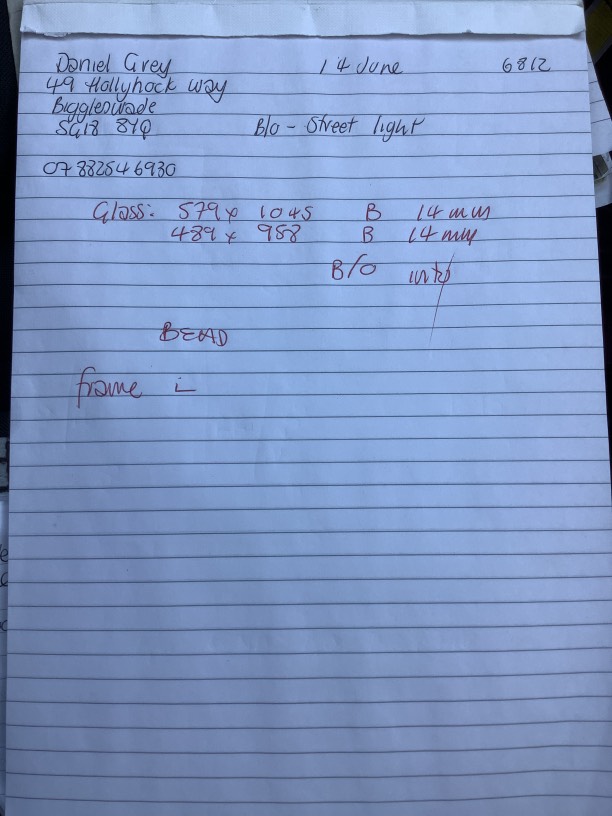 Daniel Grey 14 June 6812
49 Hollyhock Way
Biggleswade
SG18 8YQ B/o - Street light
07882546930
Glass: 579 x 1045 B 14mm
489 x 988 B 14mm
B/O
BEAD
frame